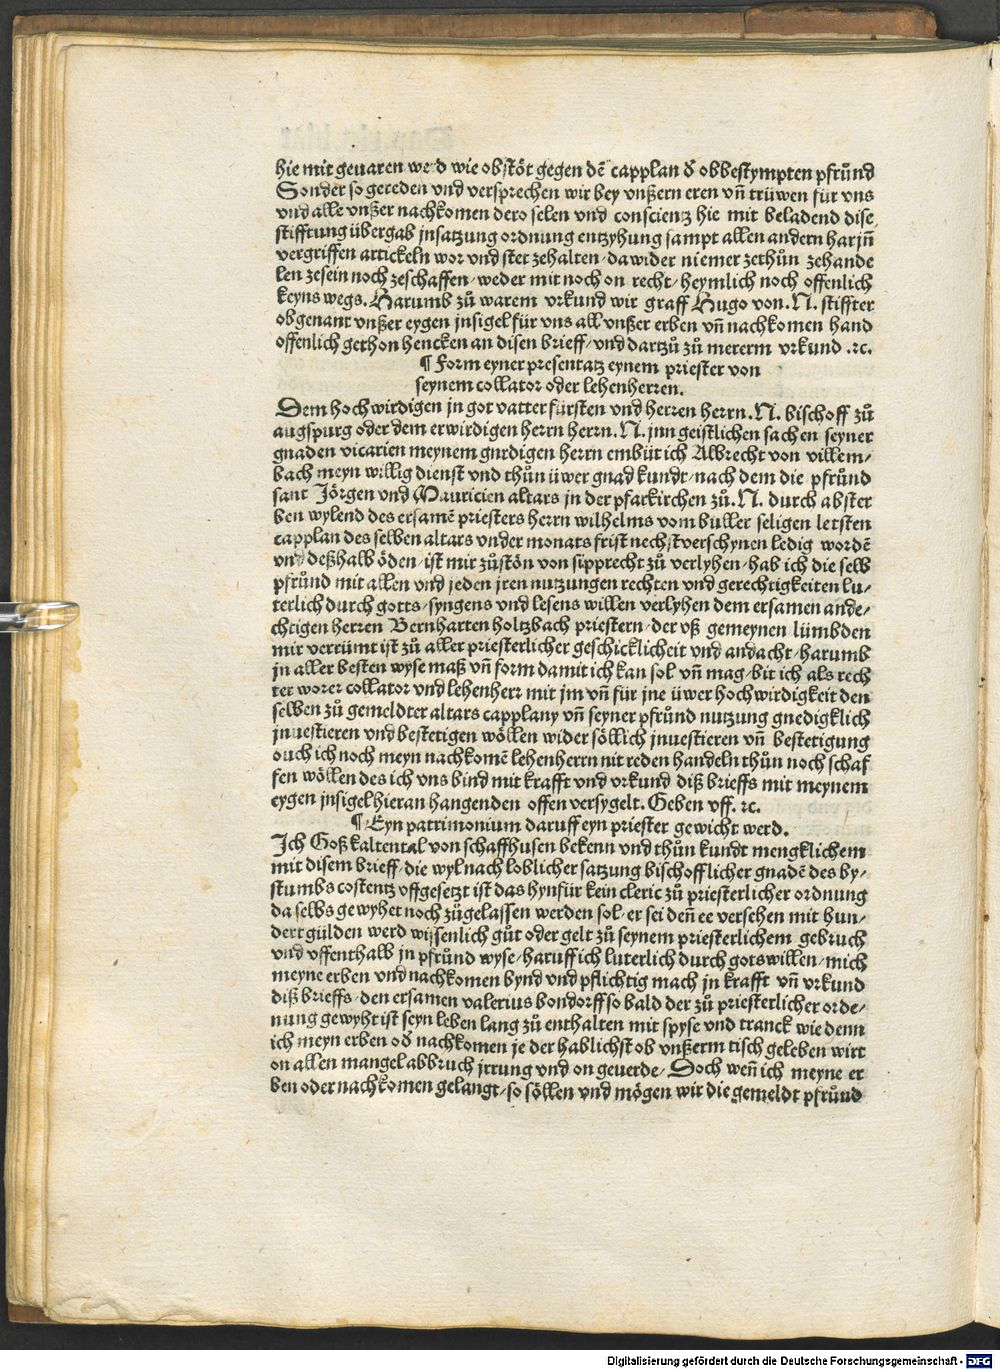 hie mit geuaren werd wie obstöt gegen dē capplan d̕ obbestympten pfrůnd
Sonder so gereden vnd versprechen wir bey vnßern eren vn̄ trüwen für vns
vnd alle vnßer nachkomen dero selen vnd conscientz hie mit beladend dise
stifftung übergab jnsatzung ordnung entzyhung sampt allen andern harjn̄
vergriffen artickeln wor vnd stet zehalten / da wider niemer zethůn zehande
len ze sein noch zeschaffen / weder mit noch on recht / heymlich noch offenlich
keyns wegs. Harumb zů warem vrkund wir graff Hugo von .N. stiffter
obgenant vnßer eygen jnsigel für vns all vnßer erben vn̄ nachkomen hand
offenlich gethon hencken an disen brieff / vnd dartzů zů mererm vrkund .⁊c.
¶ Form eyner presentatz eynem priester von
seynem collator oder lehenherren.
Dem hochwirdigen jn got vatter fürsten vnd herren herrn .N. bischoff zů
augspurg oder dem erwirdigen herrn herrn .N. jnn geistlichen sachen seyner
gnaden vicarien meynem gnrdigen herrn embüt ich Albrecht von villem/
bach meyn willig dienst vnd thůn üwer gnad kundt / nach dem die pfrůnd
sant Jörgen vnd Mauricien altars jn der pfarkirchen zů .N. durch abster
ben wylend des ersamē priesters herrn wilhelms vom buller seligen letsten
capplan des selben altars vnder monats frist nechst verschynen ledig wordē
vnd deßhalb öden / ist mir zůstön von sipprecht zů verlyhen / hab ich die selb
pfrůnd mit allen vnd jeden jren nutzungen rechten vnd gerechtigkeiten lu/
terlich durch gotts / syngens vnd lesens willen verlyhen dem ersamen ande/
chtigen herren Bernharten holtzbach priestern / der vß gemeynen lümbden
mir verrümt ist zů aller priesterlicher geschicklicheit vnd andacht / harumb
jn aller besten wyse maß vn̄ form damit ich kan sol vn̄ mag / bit ich als rech
ter worer collator vnd lehenherr mit jm vn̄ für jne üwer hochwirdigkeit den
selben zů gemeldter altars capplany vn̄ seyner pfrůnd nutzung gnedigklich
jnuestieren vnd bestetigen wöllen wider söllich jnuestieren vn̄ bestetigung
ouch ich noch meyn nachkomē lehenherrn nit reden handeln thůn noch schaf
fen wöllen des ich vns bind mit krafft vnd vrkund diß brieffs mit meynem
eygen jnsigel hieran hangenden offen versygelt. Geben vff. ⁊c.
¶ Eyn patrimonium daruff eyn priester gewicht werd.
Ich Goß kaltental von schaffhusen bekenn vnd thůn kundt mengklichem
mit disem brieff / die wyl nach loblicher satzung bischofflicher gnadē des by/
stumbs costentz vffgesetzt ist das hynfür kein cleric zů priesterlicher ordnung
da selbs gewyhet noch zůgelassen werden sol / er sei den̄ ee versehen mit hun/
dert gülden werd wissenlich gůt oder gelt zů seynem priesterlichem gebruch
vnd vffenthalb jn pfrůnd wyse / haruff ich luterlich durch gots willen / mich
meyne erben vnd nachkomen bynd vnd pflichtig mach jn krafft vn̄ vrkund
diß brieffs / den ersamen valerius bondorff so bald der zů priesterlicher orde/
nung gewyht ist seyn leben lang zů enthalten mit spyse vnd tranck wie denn
ich meyn erben od̕ nachkomen je der hablichst ob vnßerm tisch geleben wirt
on allen mangel abbruch jrrung vnd on geuerde / Doch wen̄ ich meyne er
ben oder nachkomen gelangt / so söllen vnd mögen wir die gemeldt pfrůnd
Digitalisierung gefördert durch die Deutsche Forschungsgemeinschaft - DFG